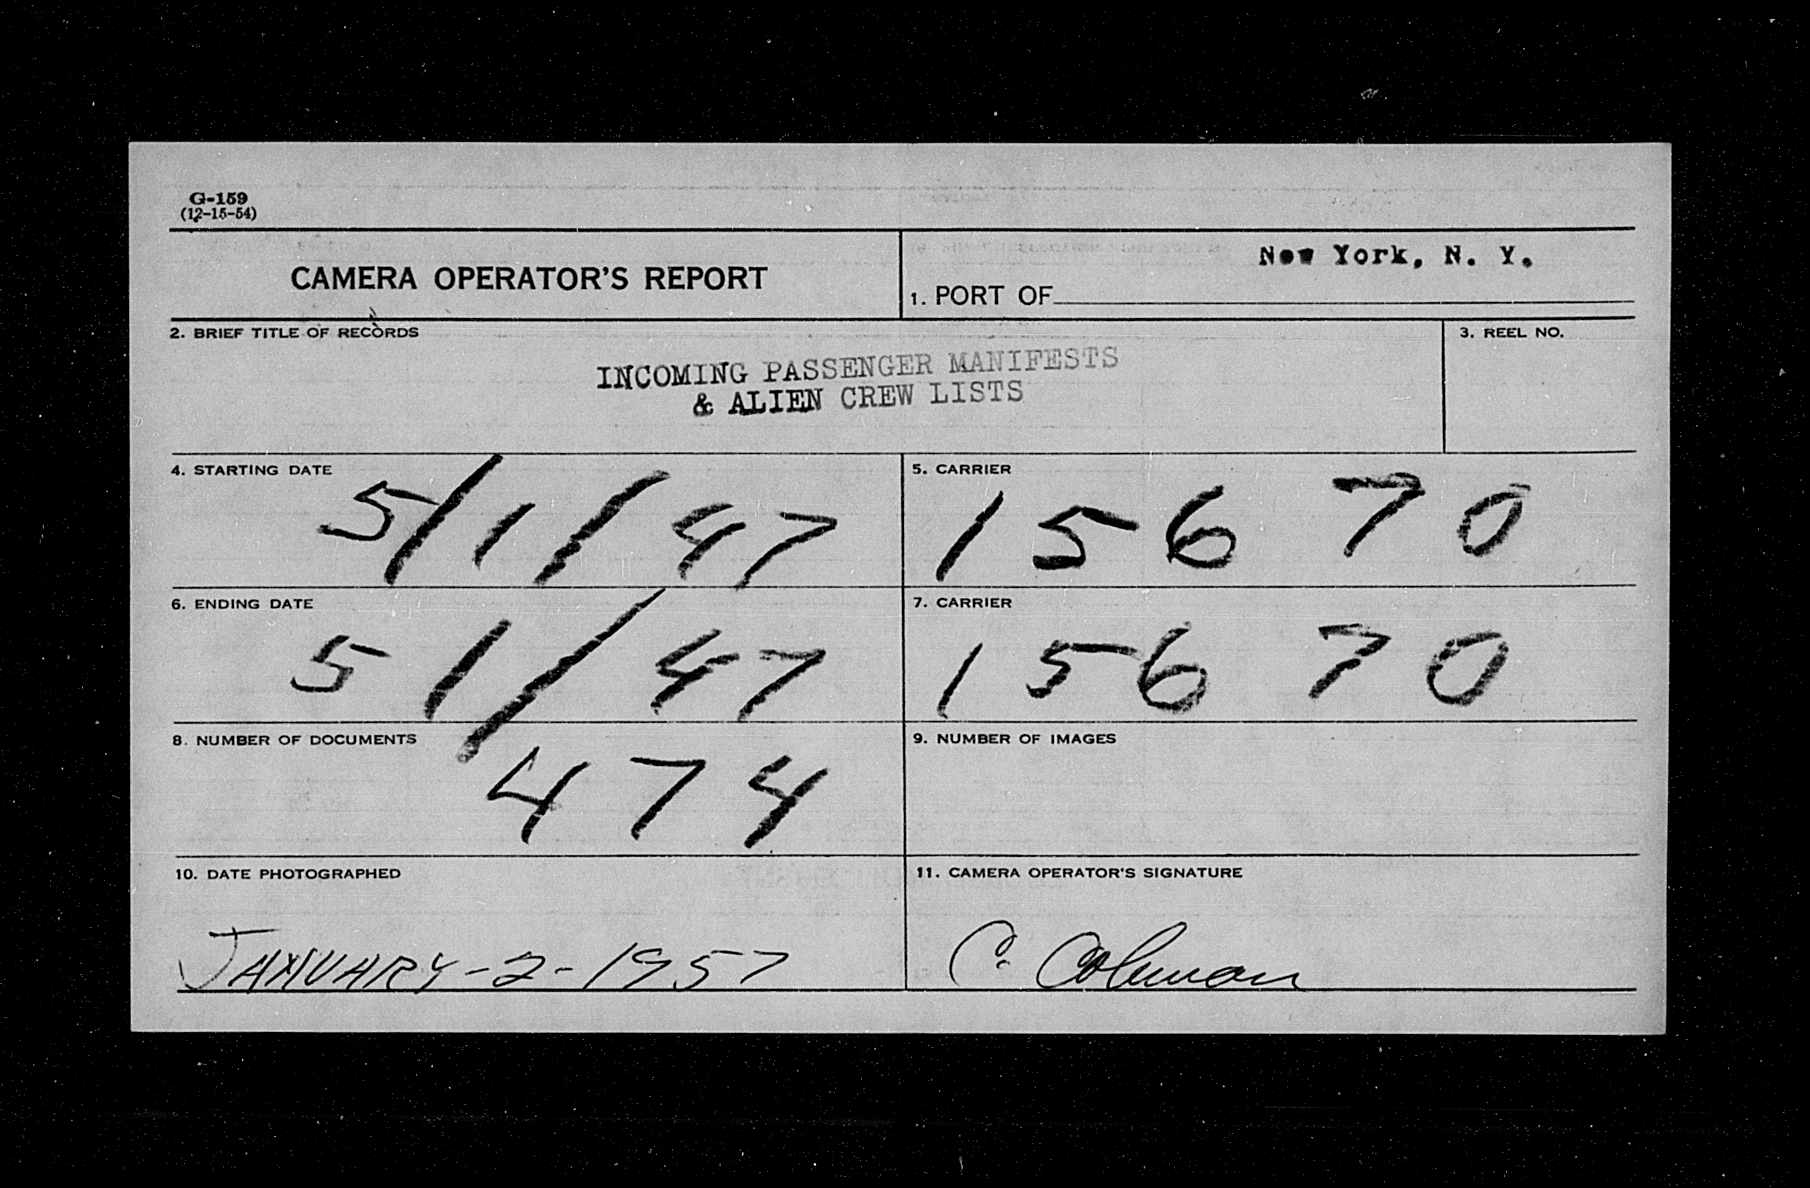 G-159
(12-15-54)
CAMERA OPERATOR'S REPORT
New York, N. Y.
1. PORT OF
2. BRIEF TITLE OF RECORDS
3. REEL NO.
INCOMING PASSENGER MANIFESTS
& ALIEN CREW LISTS
4. STARTING DATE
5/1/47
5. CARRIER
15670
6. ENDING DATE
5 1/47
7. CARRIER
15670
8. NUMBER OF DOCUMENTS
474
9. NUMBER OF IMAGES
10. DATE PHOTOGRAPHED
JANUARY-2-1957
11. CAMERA OPERATOR'S SIGNATURE
C. Coleman